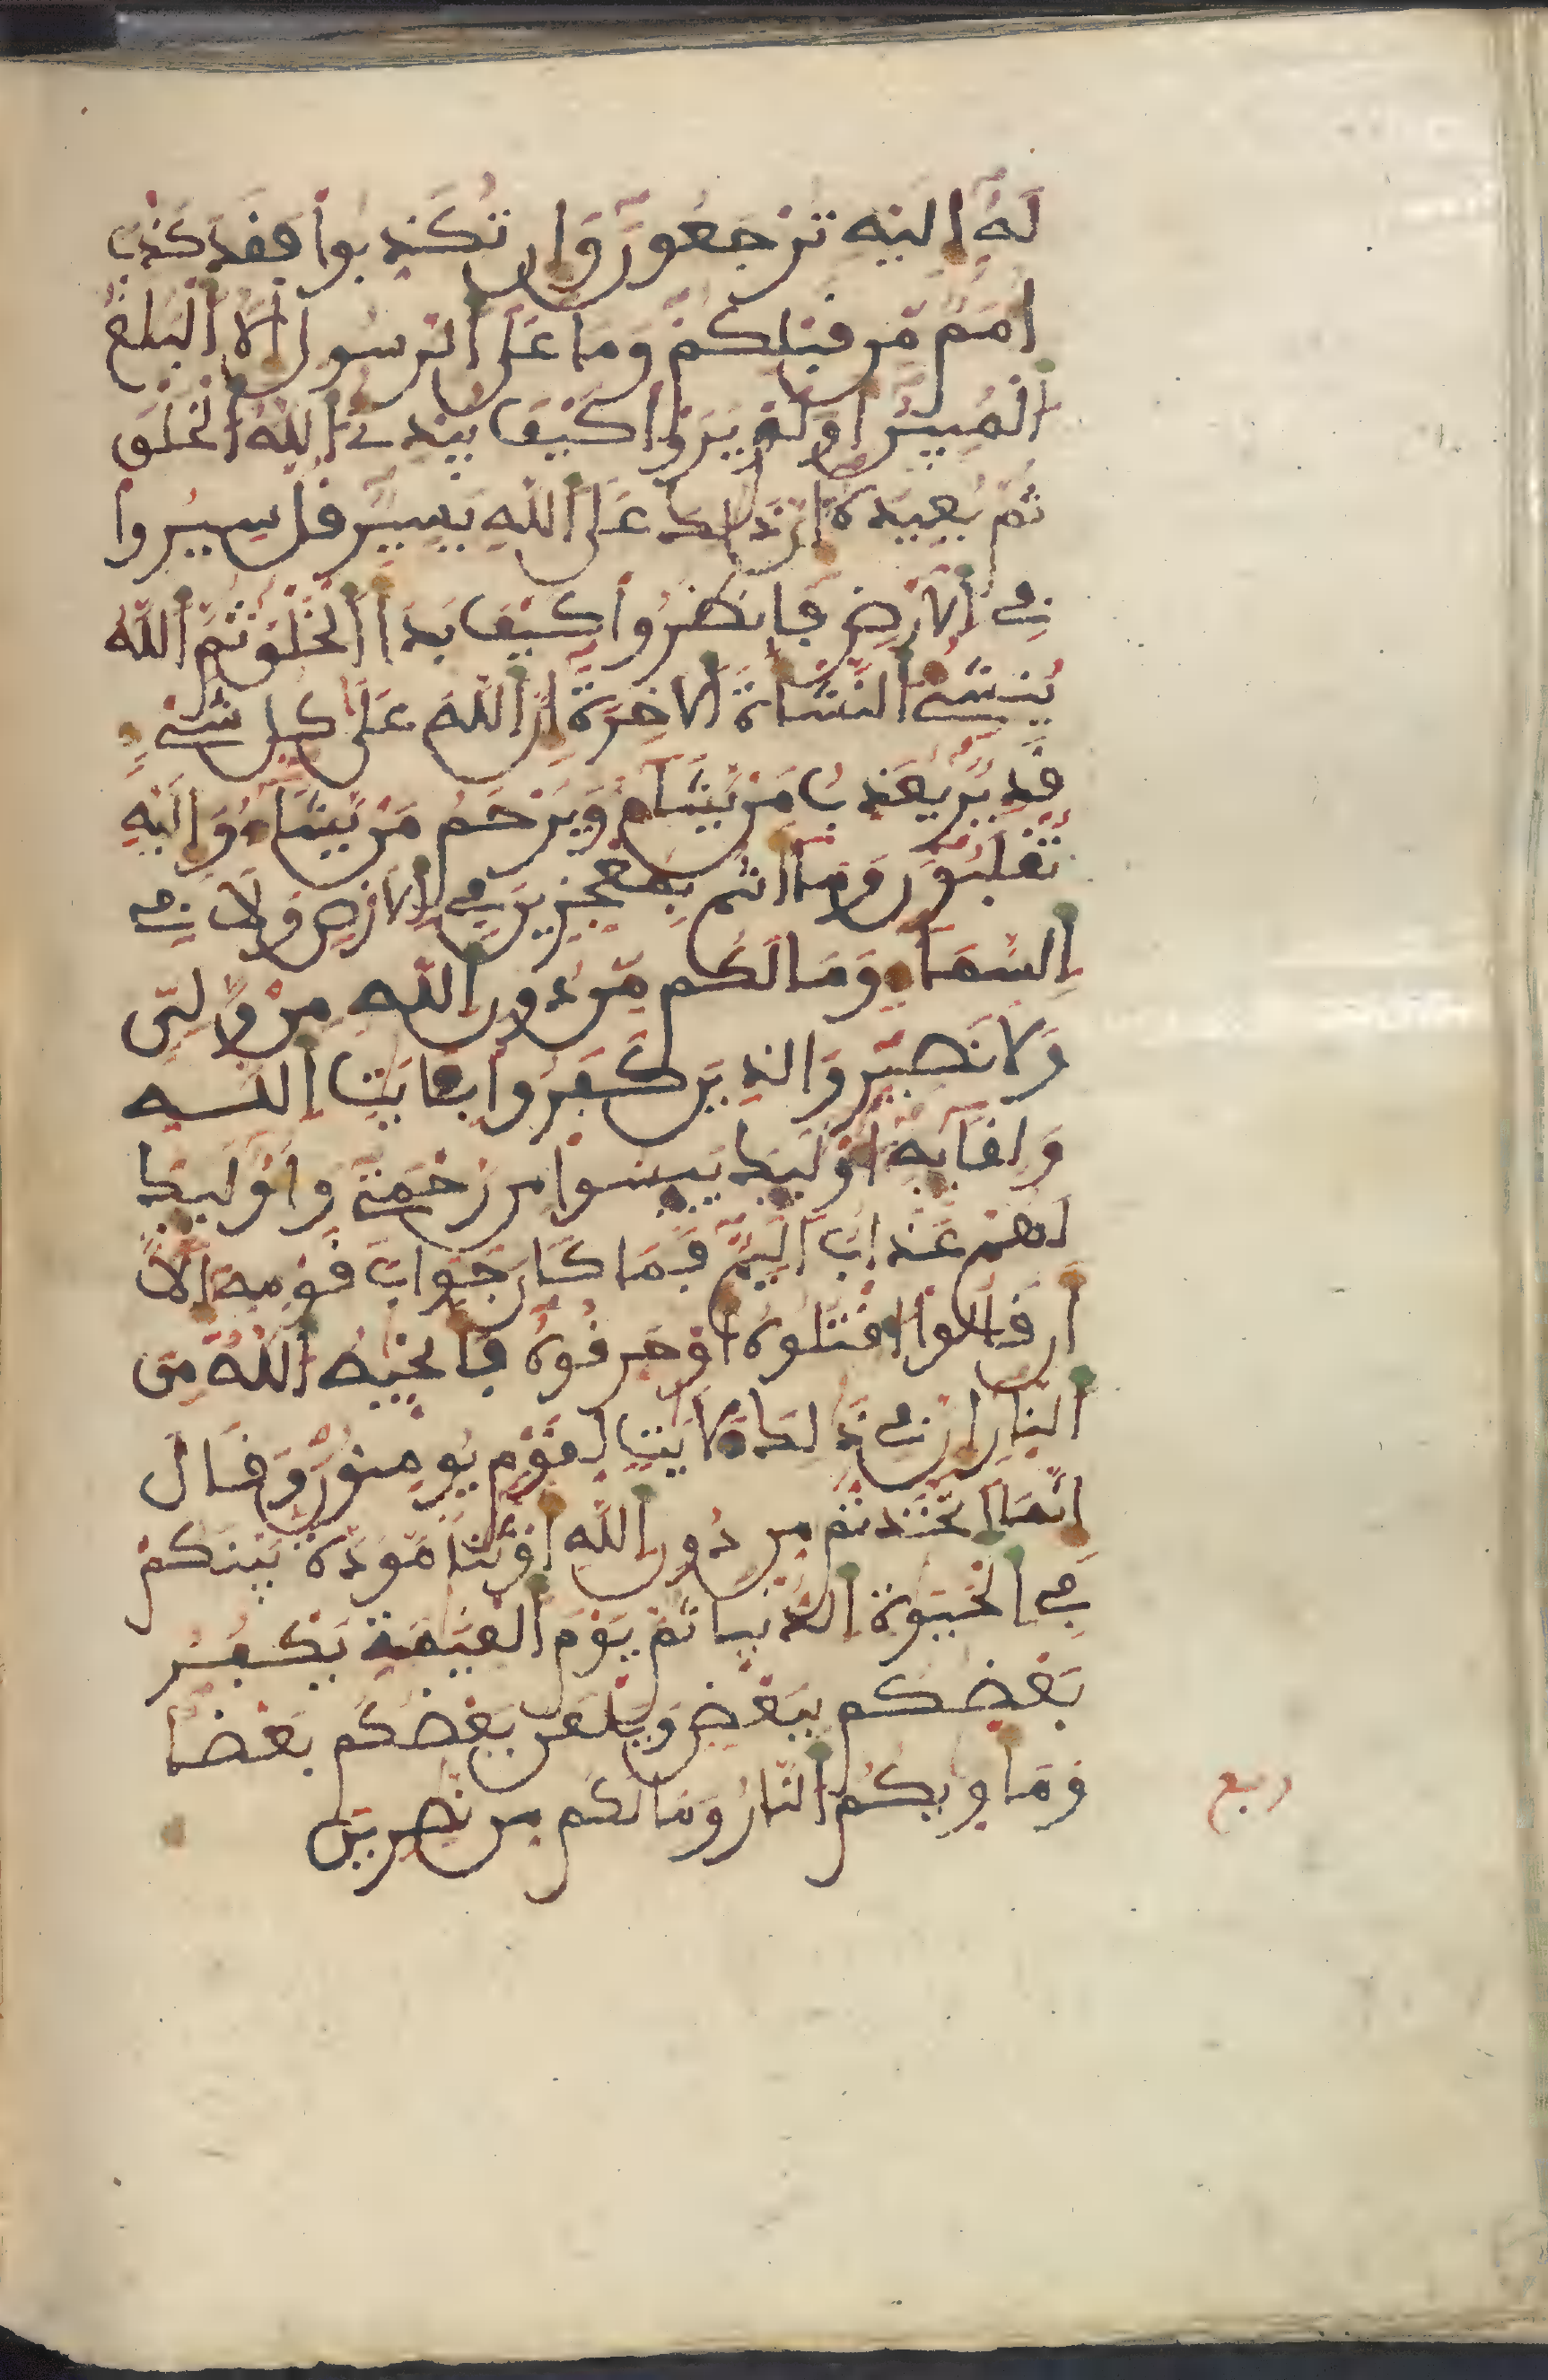 لَهُۥٓ إِلَيْهِ تُرْجَعُونَ وَإِن تُكَذِّبُوا۟ فَقَدْ كَذَّبَ
أُمَمٌ مِّن قَبْلِكُمْ وَمَا عَلَى ٱلرَّسُولِ إِلَّا ٱلْبَلَٰغُ
ٱلْمُبِينُ أَوَلَمْ يَرَوْا۟ كَيْفَ يُبْدِئُ ٱللَّهُ ٱلْخَلْقَ
ثُمَّ يُعِيدُهُۥٓ إِنَّ ذَٰلِكَ عَلَى ٱللَّهِ يَسِيرٌ قُلْ سِيرُوا۟
فِے ٱلْأَرْضِ فَانظُرُوا۟ كَيْفَ بَدَأَ ٱلْخَلْقَ ثُمَّ ٱللَّهُ
يُنشِئُ ٱلنَّشْأَةَ ٱلْأَخِرَةَ إِنَّ ٱللَّهَ عَلَىٰ كُلِّ شَےْءٍ
قَدِيرٌ يُعَذِّبُ مَنْ يَّشَآءُ وَيَرْحَمُ مَنْ يَّشَآءُ وَإِلَيْهِ
تُقْلَبُونَ وَمَآ أَنتُم بِمُعْجِزِينَ فِے ٱلْأَرْضِ وَلَا فِے
ٱلسَّمَآءِ وَمَا لَكُم مِّن دُونِ ٱللَّهِ مِنْ وَّلِىٍّ
وَلَا نَصِيرٍ وَالَّذِينَ كَفَرُوا۟ بِـَٔايَٰتِ ٱللَّهِ
وَلِقَآئِهِۦٓ أُو۟لَٰٓئِكَ يَئِسُوا۟ مِن رَّحْمَتِے وَأُو۟لَٰٓئِكَ
لَهُمْ عَذَابٌ أَلِيمٌ فَمَا كَانَ جَوَابَ قَوْمِهِۦٓ إِلَّآ
أَن قَالُوا۟ اقْتُلُوهُ أَوْ حَرِّقُوهُ فَأَنجَىٰهُ ٱللَّهُ مِنَ
ٱلنَّارِ إِنَّ فِے ذَٰلِكَ لَأَيَٰتٍ لِّقَوْمٍ يُومِنُونَ وَقَالَ
إِنَّمَا ٱتَّخَذْتُم مِّن دُونِ ٱللَّهِ أَوْثَٰنًا مَّوَدَّةً بَيْنَكُمْ
فِے ٱلْحَيَوٰةِ ٱلدُّنْيَا ثُمَّ يَوْمَ ٱلْقِيَٰمَةِ يَكْفُرُ
بَعْضُكُم بِبَعْضٍ وَيَلْعَنُ بَعْضُكُم بَعْضًا
وَمَأْوَىٰكُمُ ٱلنَّارُ وَمَا لَكُم مِّن نَّٰصِرِينَ
ربع